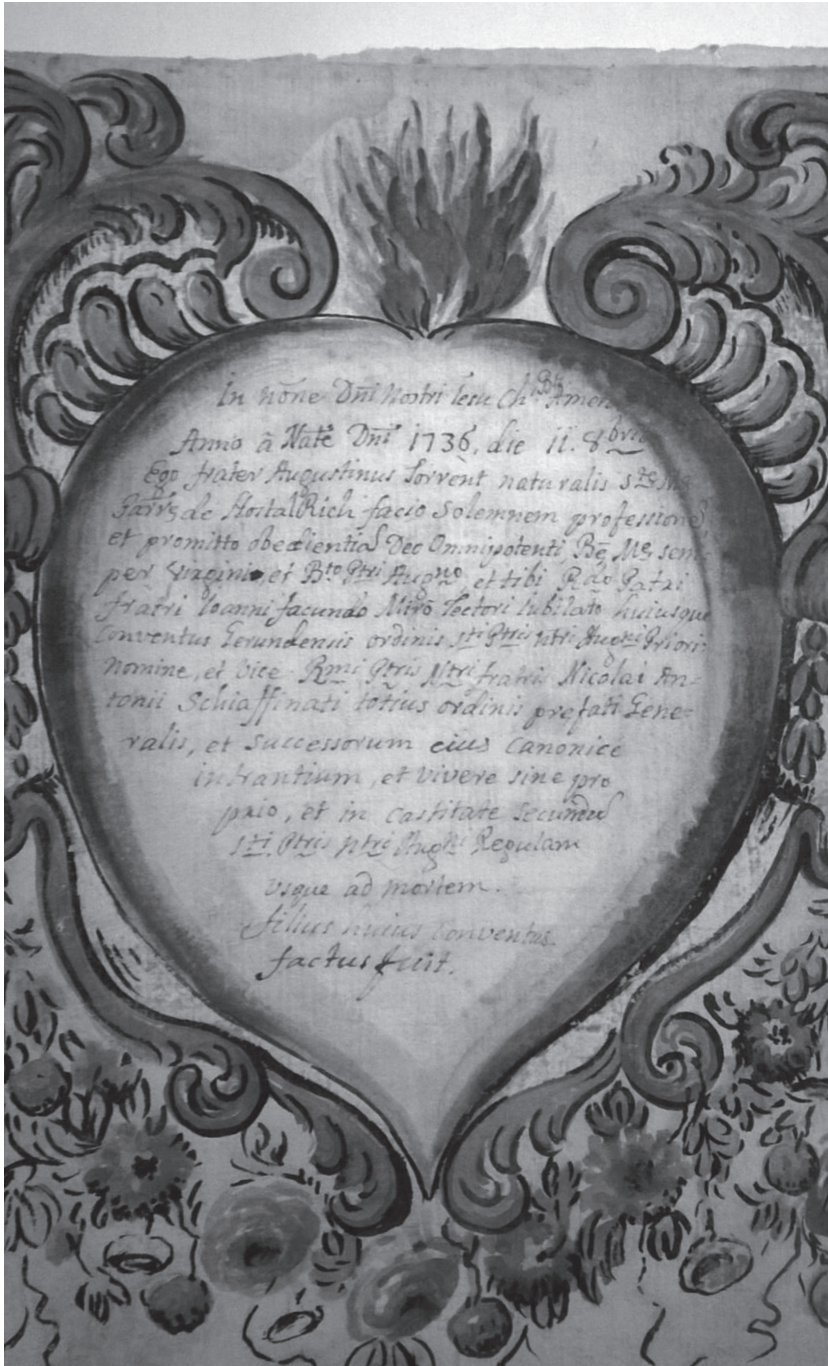 In nōne Dnī Nostri Iesu Chti Amen
Anno â Natē Dnī 1736, die 11. 8bris
Ego frater Augustinus Torrent naturalis stæ Mæ
Parrę de HostalRich facio Solemnem professionē
et promitto obedientiā Deo Omnipotenti, Bę Mę sem
per Virgini, et Bto Ptri Augno, et tibi Rdo Patri
fratri Ioanni facundo Miró Lectori Iubilato huiusque
Conventus Gerundensis ordinis sti Ptris ntri Augni Priori
nomine, et vice Rmi Ptris Ntri fratris Nicolai An=
tonii Schiaffinati totius ordinis prefati Gene=
ralis, et Successorum eius Canonice
intrantium, et vivere sine pro
prio, et in castitate Secundū
sti Ptris ntri Augni Regulam
usque ad mortem.
filius huius Conventus
factus fuit.